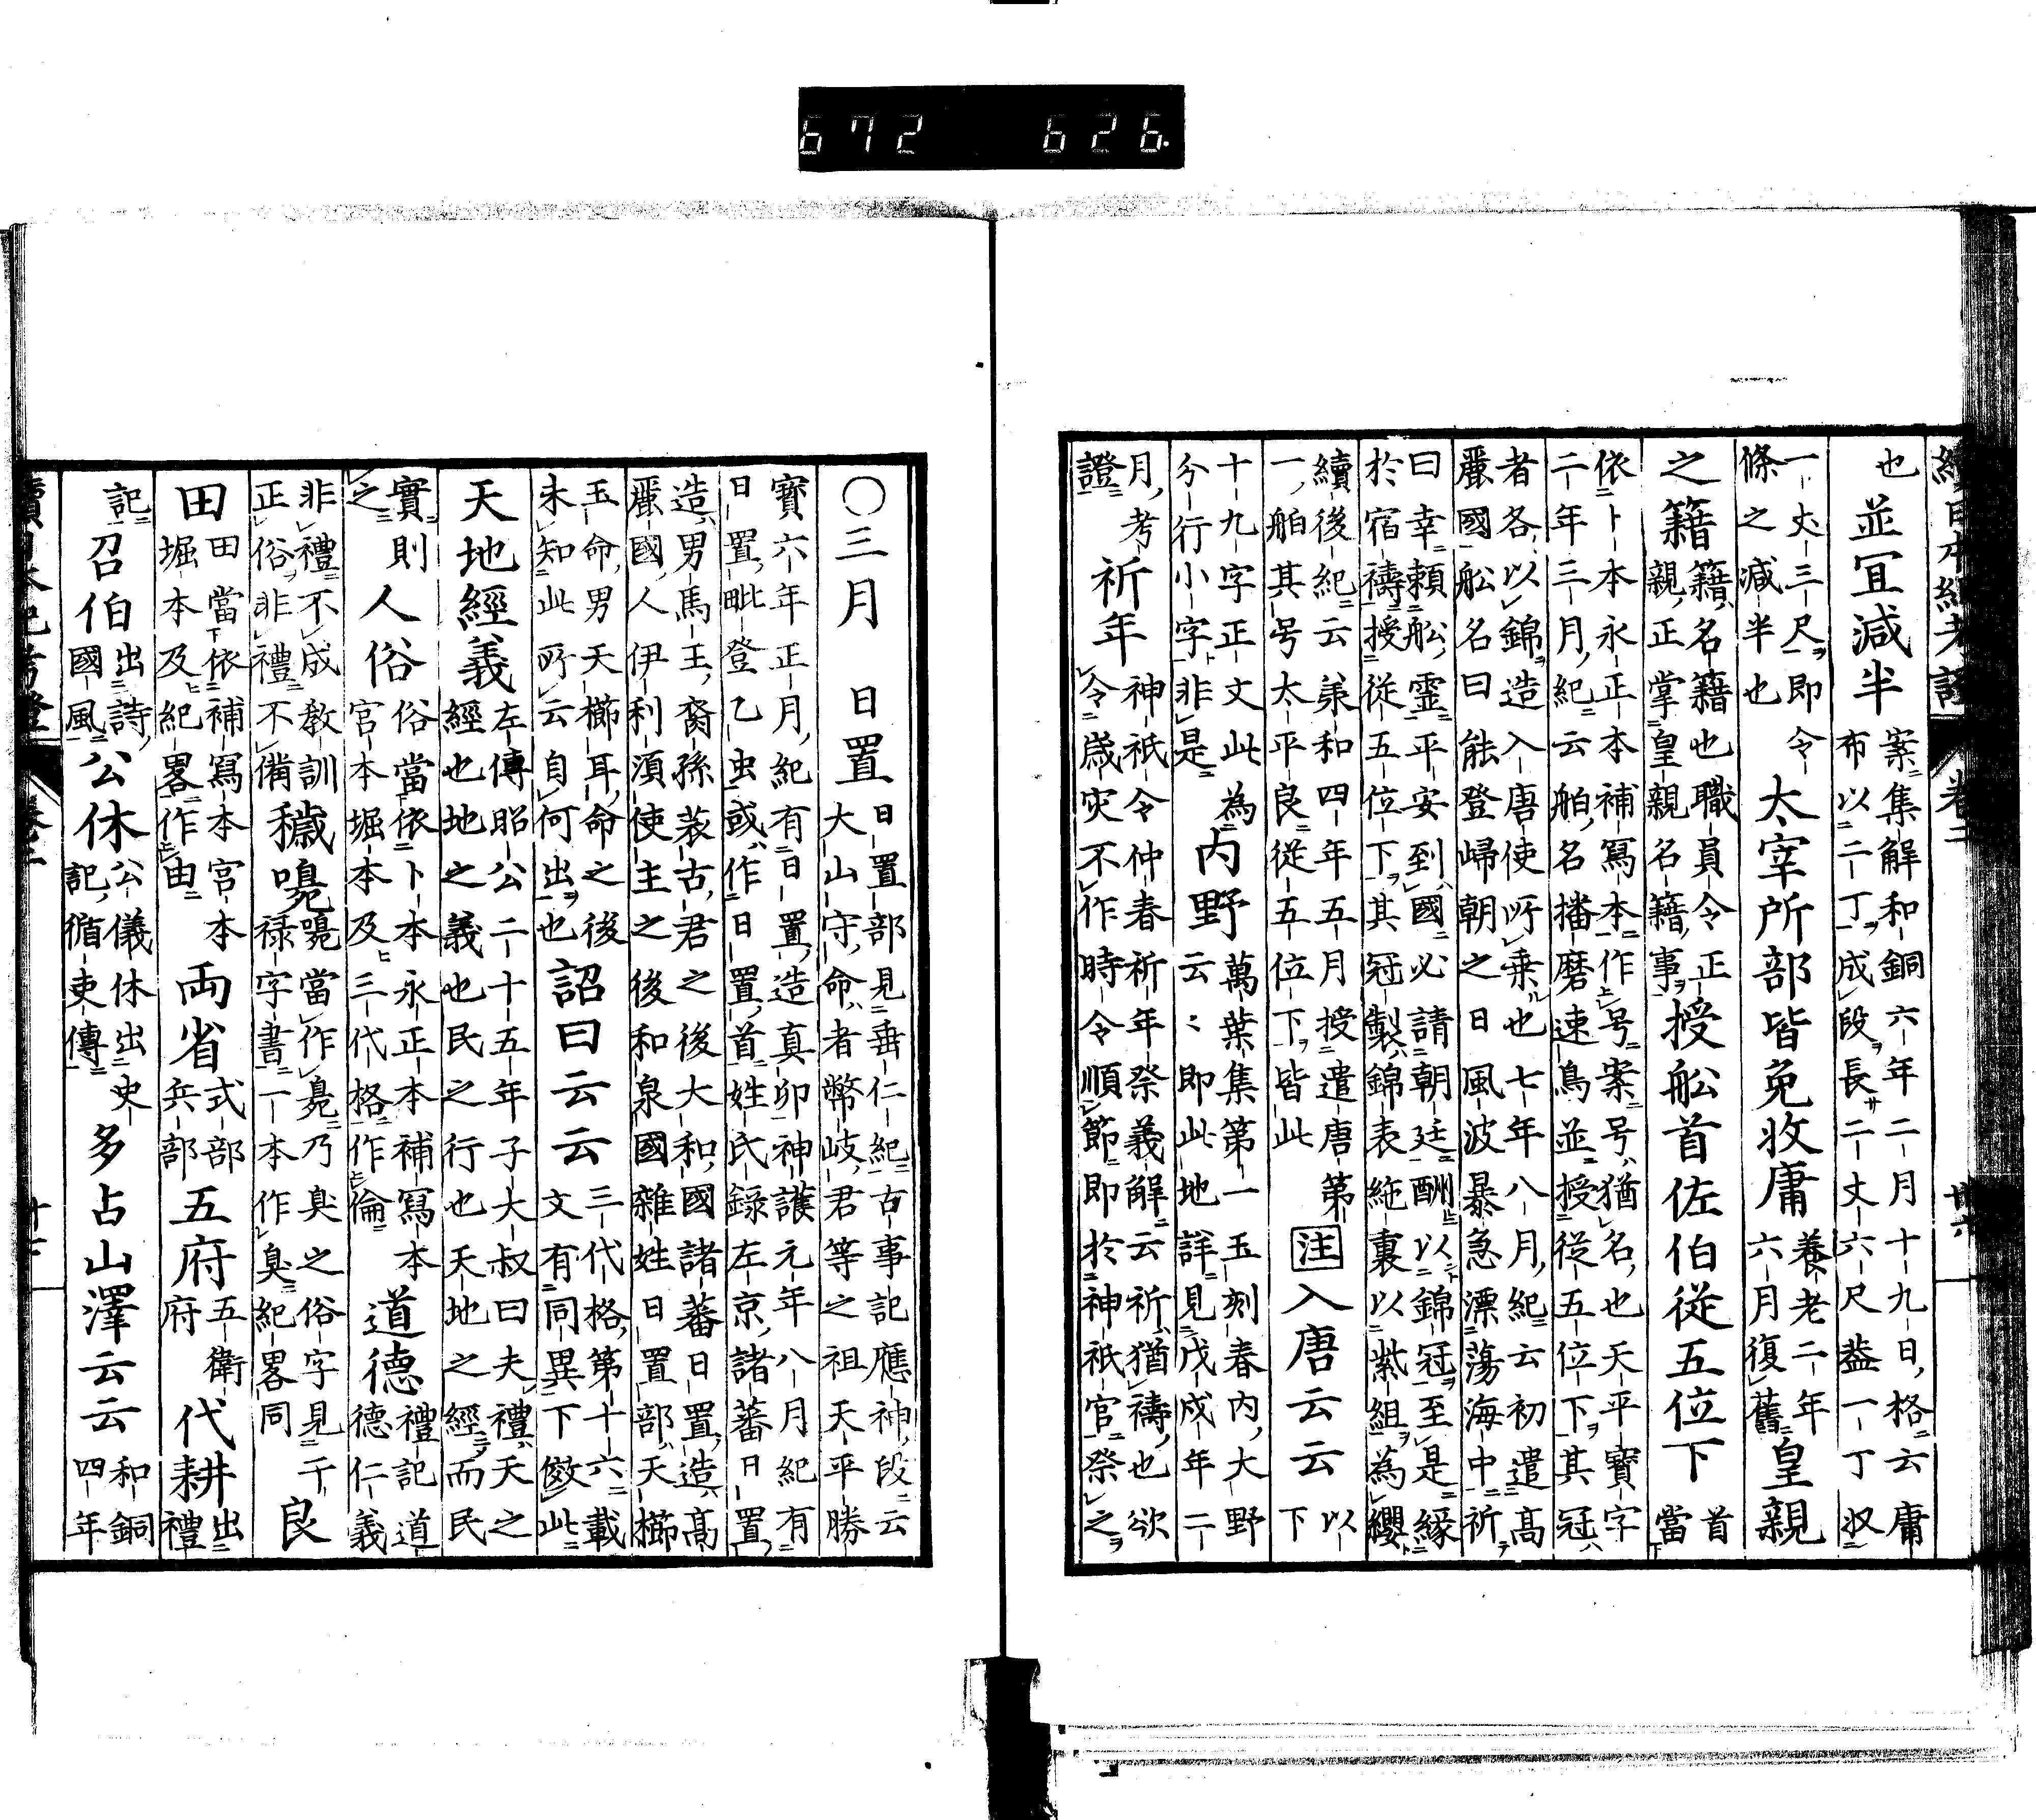 672 626.
續日本紀考證 卷二 廿六
也 並宜減半 案集解和銅六年二月十九日格云庸
布以二丁成段長二丈六尺益一丁収
一丈三尺即令
條之減半也 太宰所部皆免收庸 養老二年
六月復舊 皇親
之籍 籍名籍也職員令正
親正掌皇親名籍事 授舩首佐伯從五位下 首
當
依卜本永正本補寫本作号案号猶名也天平寶字
二年三月紀云舶名播磨速鳥並授從五位下其冠
者各以錦造入唐使所乗也七年八月紀云初遣高
嚴國舩名曰能登歸朝之日風波暴急漂蕩海中祈
曰幸頼舩靈平安到國必請朝廷酬以錦冠至是縁
於宿禱授從五位下其冠製錦表絁裏以紫組為纓
續後紀云羕和四年五月授遣唐第
一舶其号太平良從五位下皆此 注入唐云云 以
下
十九字正文此為
分行小字非是 内野 萬葉集第一玉刻春内大野
云〻即此地詳見戊戌年二
月考
證 祈年 神祇令仲春祈年祭義解云祈猶禱也欲
令歳灾不作時令順節即於神祇官祭之
〇三月 日置 日置部見垂仁紀古事記應神段云
大山守命者幣岐君等之祖天平勝
寳六年正月紀有日置造真卯神護元年八月紀有
日置毗登乙虫或作日置首姓氏録左京諸蕃日置
造男馬王裔孫莀古君之後大和國諸蕃日置造高
嚴國人伊利須使主之後和泉國雜姓日置部天櫛
玉命男天櫛耳命之後
未知此所云自何出也 詔曰云云 三代格第十六載
文有同異下傚此
天地經義 左傳昭公二十五年子大叔曰夫禮天之
經也地之義也民之行也天地之經而民
實則
之 人俗 俗當依卜本永正本補寫本
宮本堀本及三代格作倫 道德 禮記道
德仁義
非禮不成教訓
正俗非禮不備 穢㚖 㚖當作臭乃臭之俗字見干
禄字書一本作臭紀畧同 良
田 田當依補寫本宮本
堀本及紀畧作由 両省 式部
兵部 五府 五衛
府 代耕 出
禮
記 召伯 出詩
國風 公休 公儀休出史
記循吏傳 多占山澤云云 和銅
四年
續日本紀考證 卷二 廿七